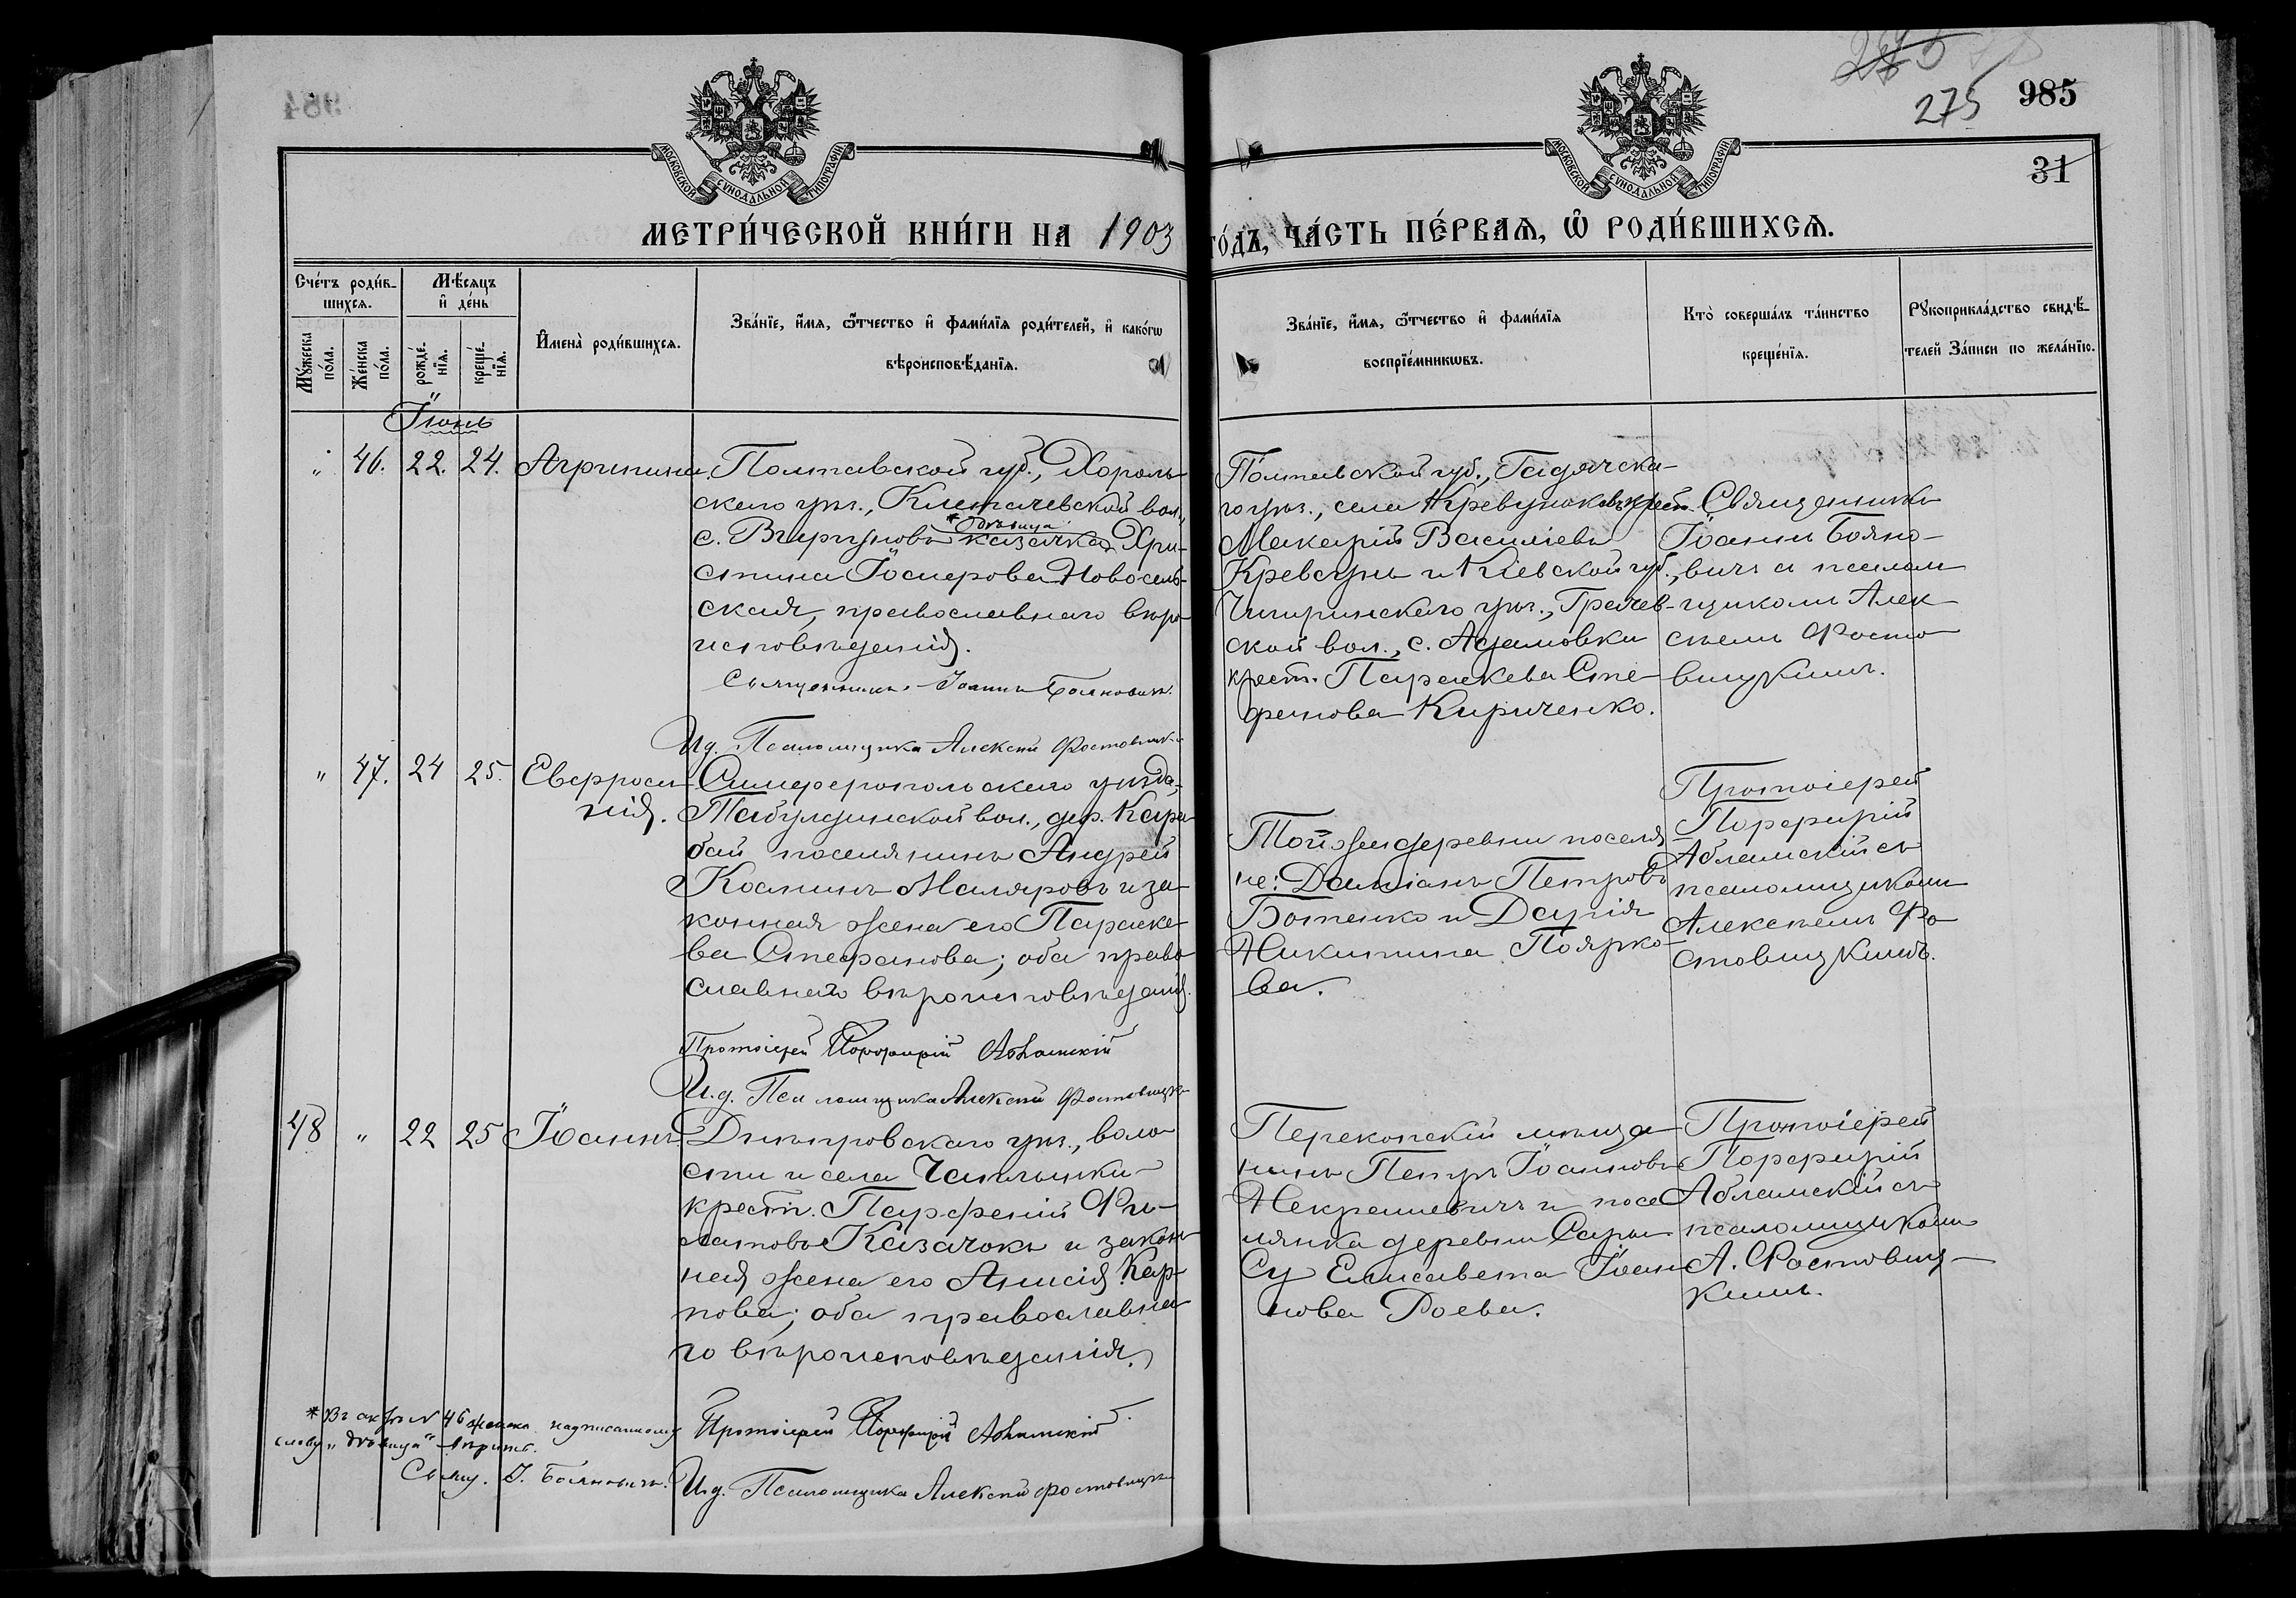 275
275
985
31
МОСКОВСКОЙ СѴНОДАЛЬНОЙ ТИПОГРАФІИ
МОСКОВСКОЙ СѴНОДАЛЬНОЙ ТИПОГРАФІИ
МЕТРИ́ЧЕСКОЙ КНИ́ГИ НА 1903 ГО́ДЪ, ЧА́СТЬ ПЕ́РВАѦ, Ѿ РОДИ́ВШИХСѦ.
Сче́тъ роди́в-
шихсѧ.
Мѣ́сѧцъ
и҆ де́нь
Мꙋ́жеска
по́ла.
Же́нска
по́ла.
рожде́-
нїѧ.
креще́-
нїѧ.
И҆мена̀ роди́вшихсѧ.
Зва́нїе, и҆́мѧ, ѻ҆́тчество и҆ фами́лїѧ роди́телей, и҆ како́гѡ
вѣроисповѣ́данїѧ.
Зва́нїе, и҆́мѧ, ѻ҆́тчество и҆ фами́лїѧ
воспрїе́мникѡвъ.
Кто̀ соверша́лъ та́инство
креще́нїѧ.
Рꙋкоприкла́дство свидѣ́-
телей за́писи по жела́нїю.
Іюнь
" 46. 22. 24. Агрипина.
Полтавской губ., Хороль-
скаго уѣз., Клепачевской вол.,
* дѣвица
с. Вергуновъ казачка Хри-
стина Іосифова Новосель-
ская, православнаго вѣро-
исповѣданія.
Священникъ Іоаннъ Бояновичъ.
И.д. Псаломщика Алексѣй Фостовицкій
Полтавской губ., Гадячска-
го уѣз., села Кревунковъ крест.
Макарій Василіевъ
Кревсунъ и Кіевской губ.,
Чигиринскаго уѣз., Грачев-
ской вол., с. Адамовки
крест. Параскева Сте-
фанова Кириченко.
Священникъ
Іоаннъ Бояно-
вичъ съ псалом-
щикомъ Алек-
сѣемъ Фосто-
вицкимъ.
" 47. 24 25. Евфроси-
нія.
Симферопольскаго уѣзда,
Табулдинской вол., дер. Кара-
бай поселянинъ Андрей
Косминъ Маляровъ и за-
конная жена его Параске-
ва Стефанова; оба право-
славнаго вѣроисповѣданія.
Протоіерей Порфирій Абламскій
И.д. Псаломщика Алексѣй Фостовицкій
Той же деревни поселя-
не: Даміанъ Петровъ
Ботенко и Дарія
Никитина Поярко-
ва.
Протоіерей
Порфирій
Абламскій съ
псаломщикомъ
Алексѣемъ Фо-
стовицкимъ.
48 " 22 25 Іоаннъ
Днѣпровскаго уѣз., воло-
сти и села Чаплинки
крест. Парфеній Фи-
латовъ Казачокъ и закон-
ная жена его Анисія Кар-
пова; оба православна-
го вѣроисповѣданія.
Протоіерей Порфирій Абламскій
И.д. Псаломщика Алексѣй Фостовицкій
Перекопскій мѣща-
нинъ Петръ Іоанновъ
Некрашевичъ и посе-
лянка деревни Сары-
Су Елисавета Іоан-
нова Роева.
Протоіерей
Порфирій
Абламскій съ
псаломщикомъ
А. Фостовиц-
кимъ.
* Въ актѣ № 46 женска надписанному
слову "дѣвица" вѣрить.
Свящ. І. Бояновичъ.